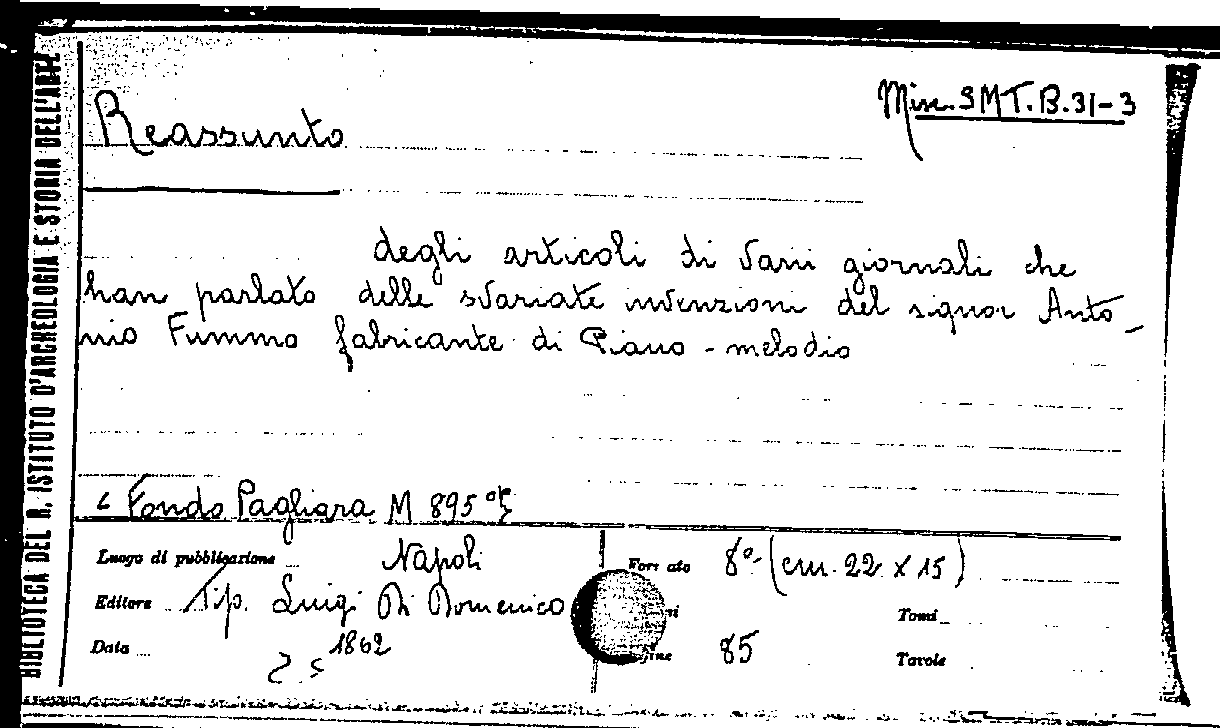 BIBLIOTECA DEL R. ISTITUTO D'ARCHEOLOGIA E STORIA DELL'ARTE
Misc. SMT.B.31-3
Reassunto
degli articoli di varii giornali che
han parlato delle svariate invenzioni del signor Anto-
nio Fummo fabricante di Piano-melodio
Fondo Pagliara M 895
Luogo di pubblicazione Napoli Formato 8°-(cm. 22 X 15)
Editore Tip. Luigi Di Domenico Tomi
Data 1862 85 Tavole